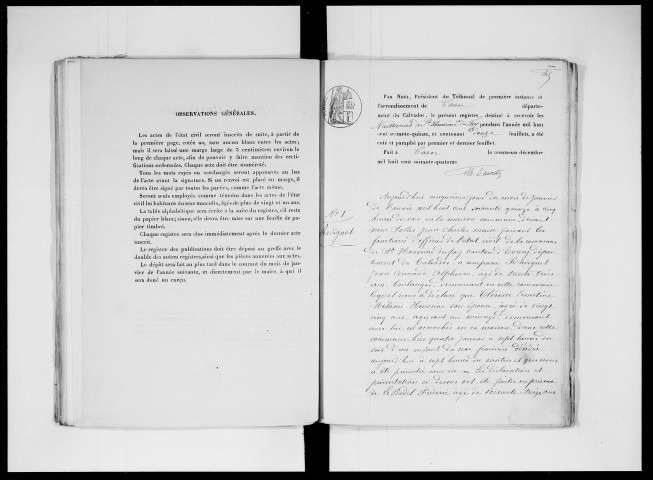 OBSERVATIONS GÉNÉRALES.
Les actes de l'état civil seront inscrits de suite, à partir de
la première page, cotée 20, sans aucun blanc entre les actes;
mais il sera laissé une marge large de 8 centimètres environ le
long de chaque acte, afin de pouvoir y faire mention des recti-
fications ordonnées. Chaque acte doit être numéroté.
Tous les mots rayés ou surchargés seront approuvés au bas
de l'acte avant la signature. Si un renvoi est placé en marge, il
devra être signé par toutes les parties, comme l'acte même.
Seront seuls employés comme témoins dans les actes de l'état
civil les habitants du sexe masculin, âgés de plus de vingt et un ans.
La table alphabétique sera écrite à la suite du registre, s'il reste
du papier blanc; sinon, elle devra être mise sur une feuille de pa-
pier timbré.
Chaque registre sera clos immédiatement après le dernier acte
inscrit.
Le registre des publications doit être déposé au greffe avec le
double des autres registres, ainsi que les pièces annexées aux actes.
Le dépôt sera fait au plus tard dans le courant du mois de jan-
vier de l'année suivante, et directement par le maire, à qui il
sera donné un reçu.
PAR NOUS, Président du Tribunal de première instance de
l'arrondissement de Caen départe-
ment du Calvados, le présent registre, destiné à recevoir les
Naissances de St Honorine du fay pendant l'année mil huit
cent soixante-quinze, et contenant douze feuillets, a été
coté et paraphé par premier et dernier feuillet.
Fait à Caen le trente-un décembre
mil huit cent soixante-quatorze
No 1
Aujourd'hui cinquième jour du mois de janvier
de l'année mil huit cent soixante quinze à cinq
heures du soir en la maison commune devant
nous Jean Charles maire faisant les
fonctions d'officier de l'état civil de la commune
de Ste Honorine du fay canton d'Evrecy départe-
ment du Calvados, a comparu
Jean Alphonse, âgé de trente trois
ans, boulanger, demeurant en cette commune
Lequel nous a déclaré que Ernestine
son épouse, âgée de vingt
cinq ans, au ménage, demeurant
avec lui, est accouchée en sa maison, dans cette
commune hier quatre janvier à sept heures du
soir d'un enfant du sexe féminin
aujourd'hui à sept heures du matin et que nous
a été présenté sans vie. La déclaration et
présentation ci dessus ont été faites en présence
de Le Bidel âgé de soixante treize ans